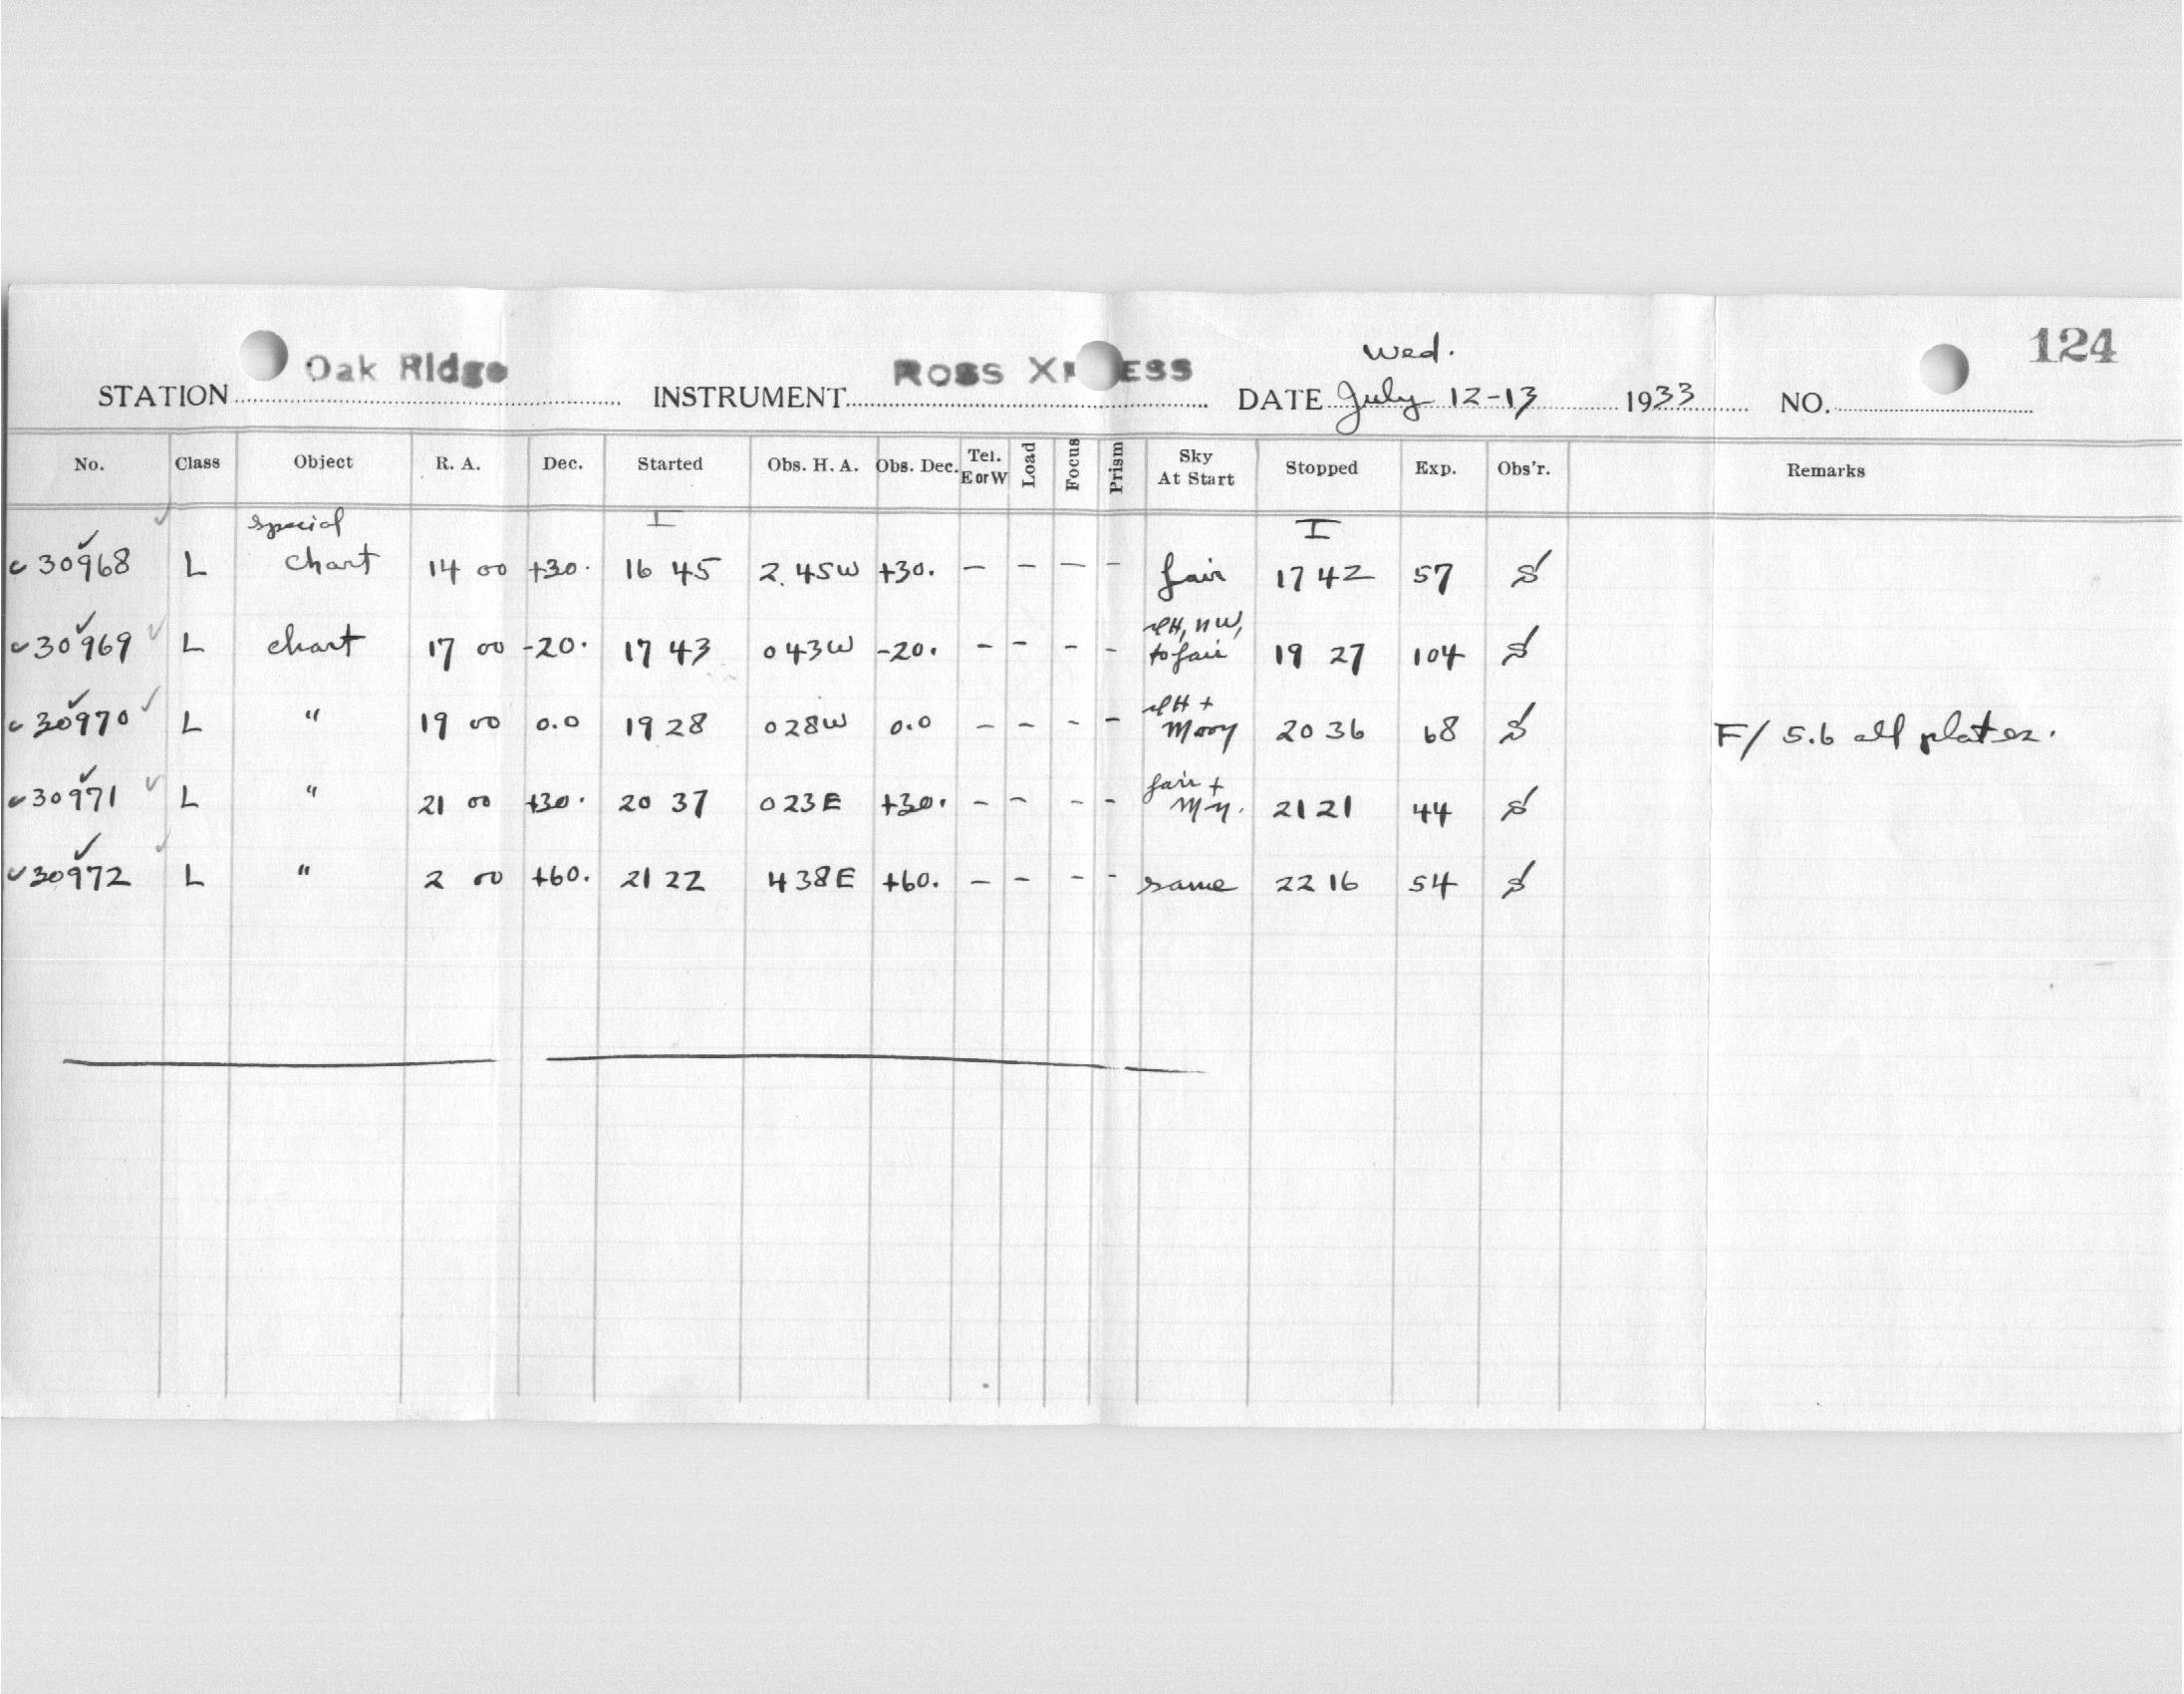 124
Wed.
STATION Oak Ridge INSTRUMENT ROSS ESS DATE July 12-13 1933 NO.
No. Class Object R. A. Dec. Started Obs. H. A. Obs. Dec. Tel. E or W Load Focus Prism Sky At Start Stopped Exp. Obs'r. Remarks
special I I
c 30968 L chart 14 00 +30. 16 45 2.45W +30. - - - - fair 17 42 57 S
NW,
c 30969 L chart 17 00 -20. 17 43 0 43W -20. - - - - to fair 19 27 104 S
c 30970 L " 19 00 0.0 19 28 0 28W 0.0 - - - - Moony 20 36 68 S F/ 5.6 all plates.
fair +
c 30971 L " 21 00 +30. 20 37 0 23E +30. - - - - 21 21 44 S
c 30972 L " 2 00 +60. 21 22 4 38E +60. - - - - same 22 16 54 S